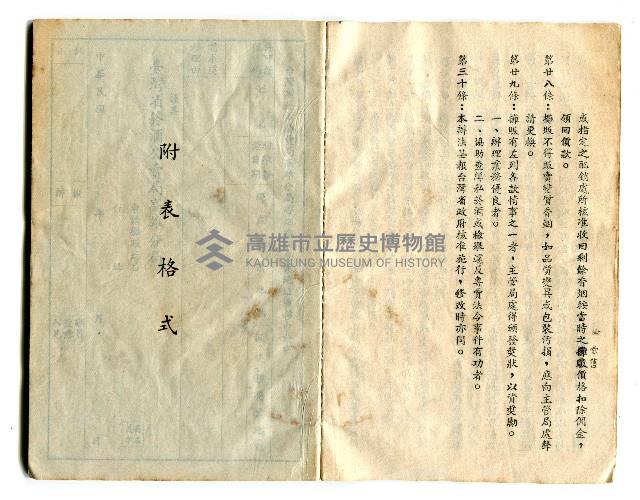 或指定之配銷處所核准收回剩餘香烟按當時之攤販價格扣除佣金，
領回價款。
第廿八條：攤販不得販賣變質香烟，如品質變異或包裝污損，應向主管局處聲
請更換。
第廿九條：攤販有左列各款情事之一者，主管局處得頒發獎狀，以資獎勵。
一、辦理業務優良者。
二、協助查緝私菸酒或檢舉違反專賣法令事件有功者。
第三十條：本辦法呈報台灣省政府核准施行，修改時亦同。
附表格式
高雄市立歷史博物館
KAOHSIUNG MUSEUM OF HISTORY